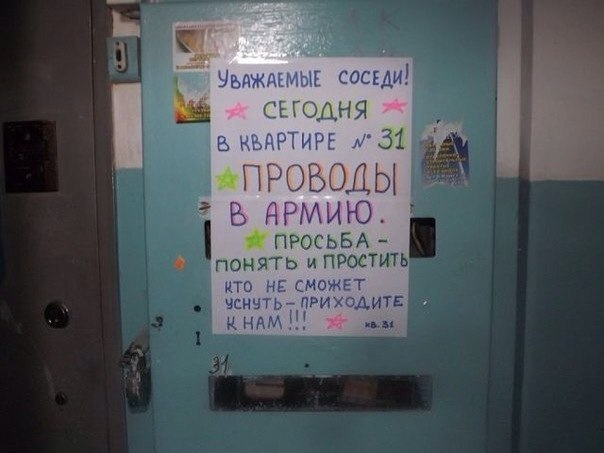 УВАЖАЕМЫЕ СОСЕДИ!
СЕГОДНЯ
В КВАРТИРЕ № 31
ПРОВОДЫ
В АРМИЮ.
ПРОСЬБА –
ПОНЯТЬ И ПРОСТИТЬ
КТО НЕ СМОЖЕТ
УСНУТЬ – ПРИХОДИТЕ
К НАМ!!!
КВ. 31
31